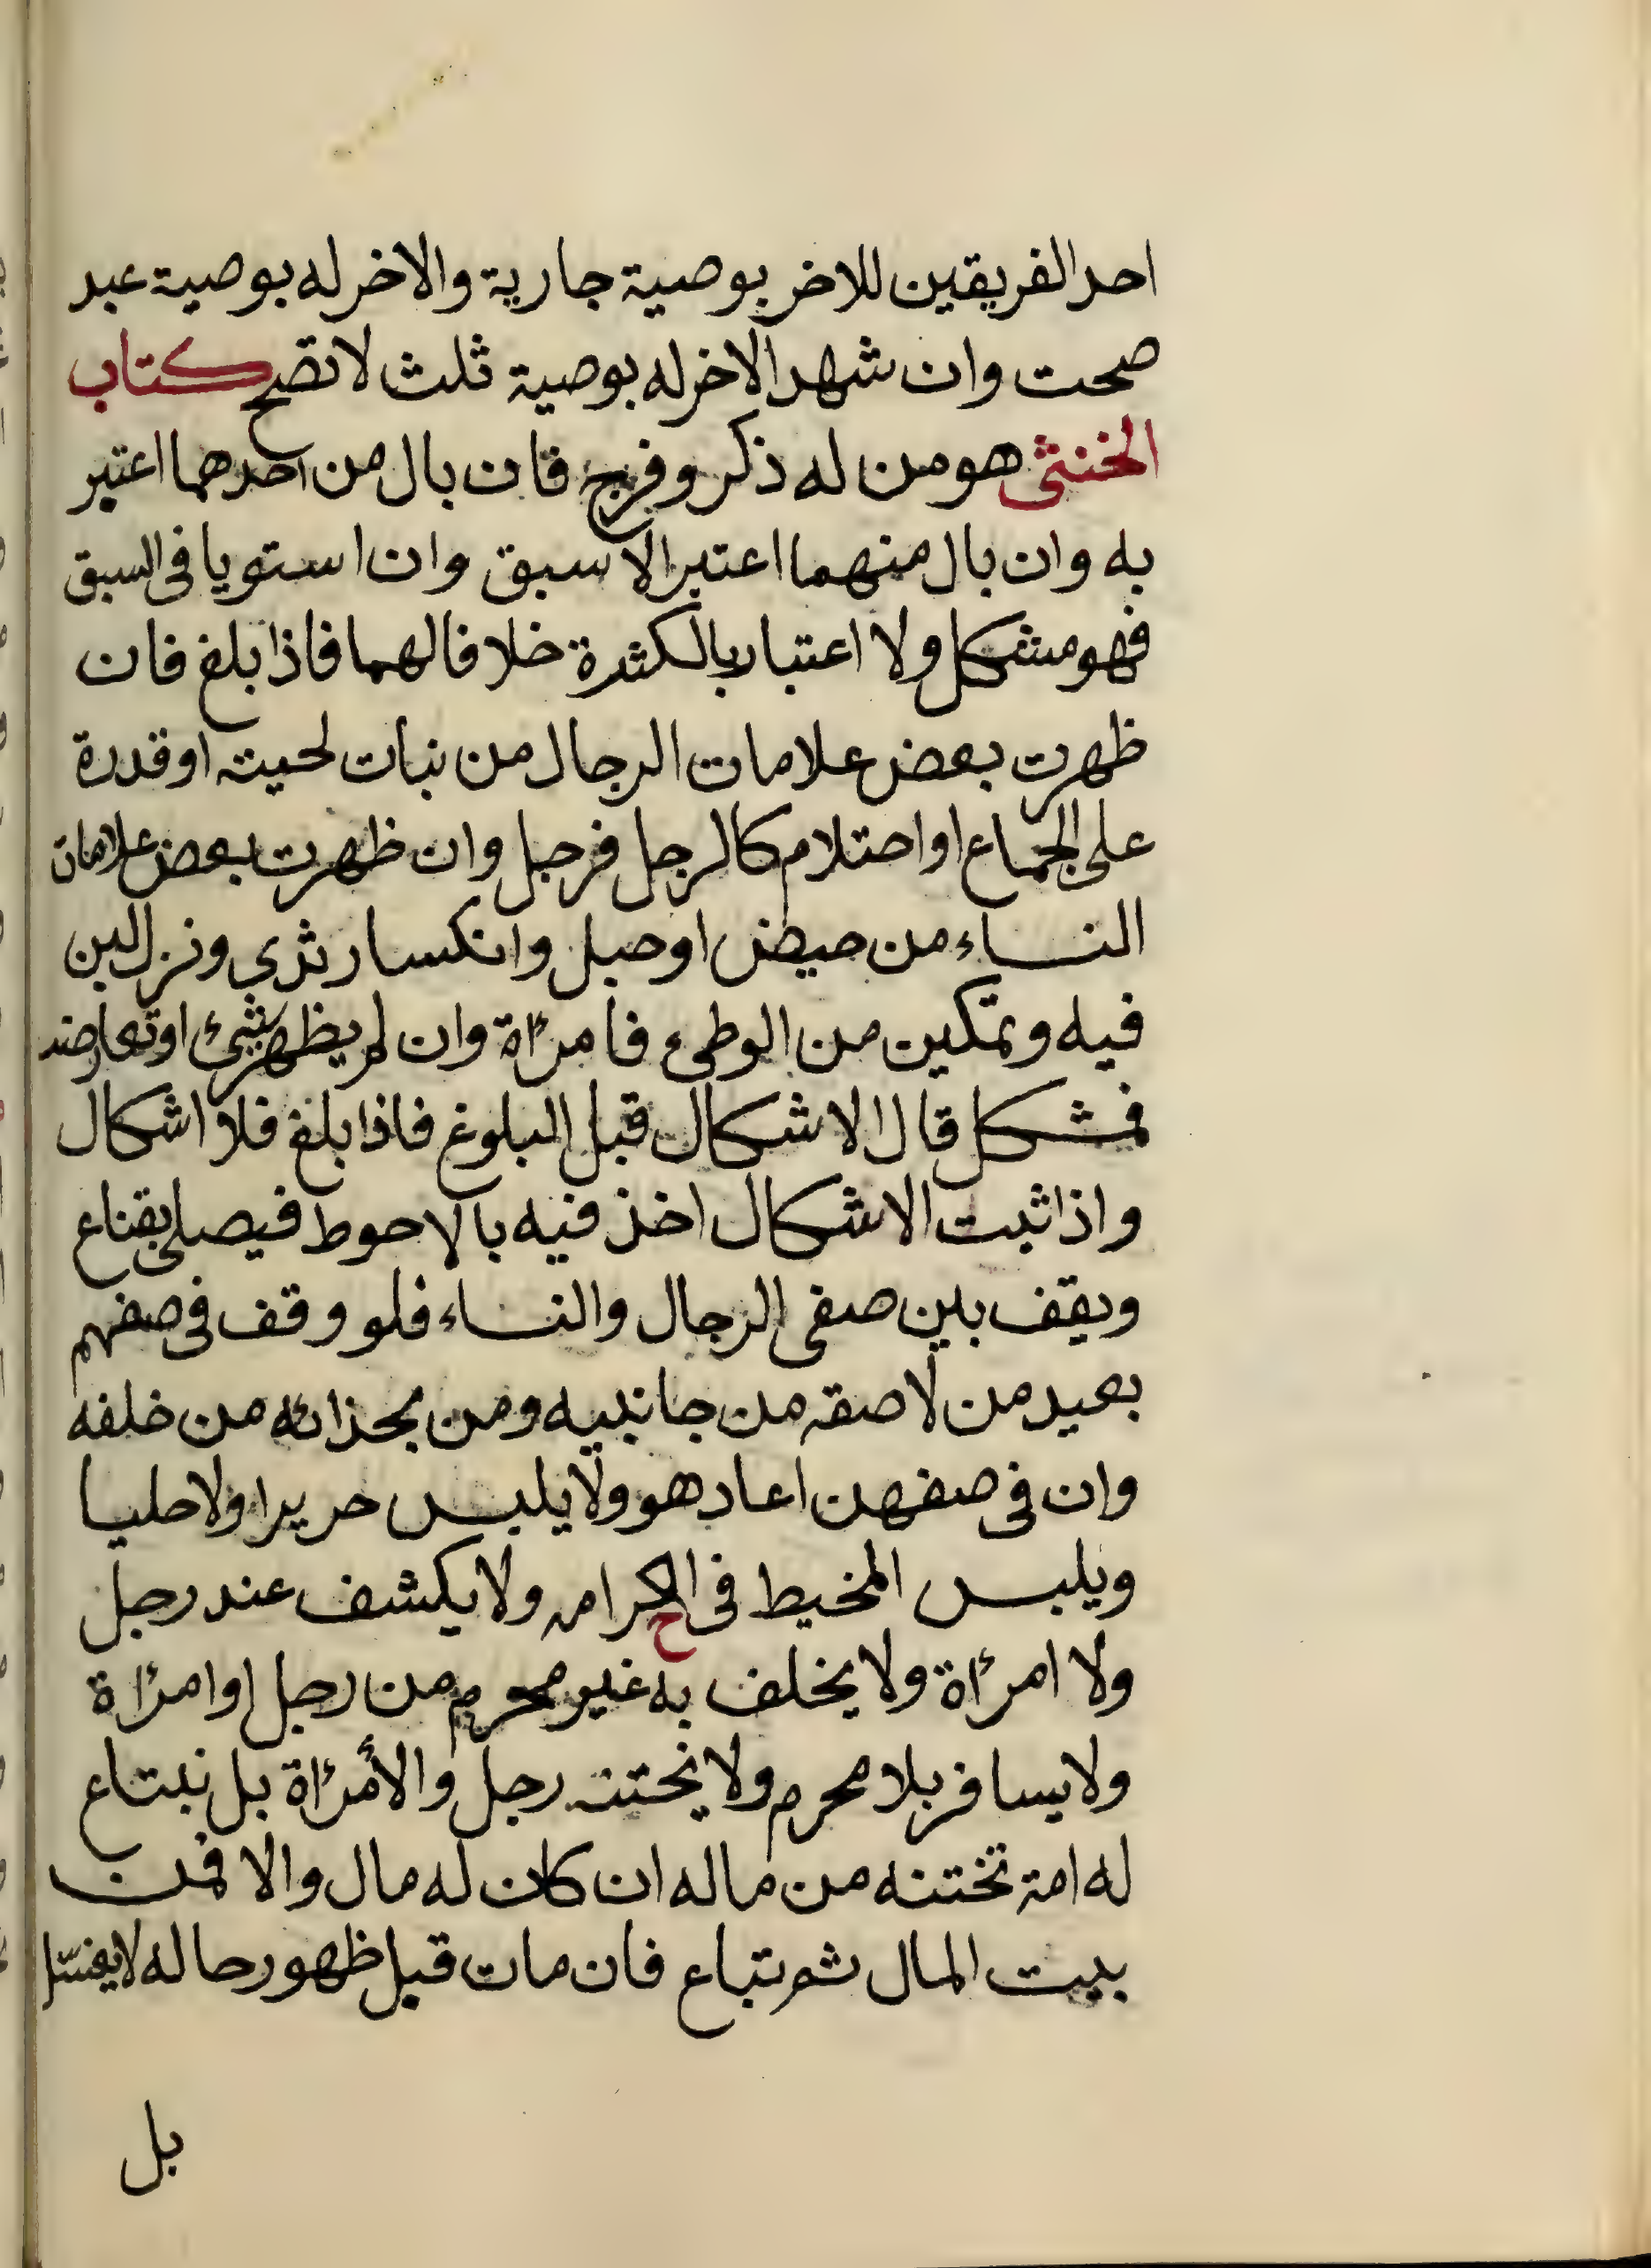 احد الفريقين للاخر بوصية جارية والاخر له بوصية عبد
صحت وان شهد الاخر له بوصية ثلث لا تصح كتاب
الخنثى هو من له ذكر وفرج فان بال من احدهما اعتبر
به وان بال منهما اعتبر الاسبق وان استويا فى السبق
فهو مشكل ولا اعتبار بالكثرة خلافا لهما فاذا بلغ فان
ظهرت بعض علامات الرجال من نبات لحيته او قدرة
على الجماع او احتلام كالرجل فرجل وان ظهرت بعض علامات
النساء من حيض او حبل وانكسار ثدى ونزل لبن
فيه وتمكين من الوطىء فامرأة وان لم يظهر شىء او تعارضت
فمشكل قال الاشكال قبل البلوغ فاذا بلغ فلا اشكال
واذا ثبت الاشكال اخذ فيه بالاحوط فيصلى بقناع
ويقف بين صفى الرجال والنساء فلو وقف فى صفهم
يعيد من لاصقه من جانبيه ومن بحذائه من خلفه
وان فى صفهن اعاد هو ولا يلبس حريرا ولا حليا
ويلبس المخيط فى احرامه ولا يكشف عند رجل
ولا امرأة ولا يخلف به غير محرم من رجل او امرأة
ولا يسافر بلا محرم ولا يختنه رجل والأمرأة بل نبتاع
له امة تختنه من ماله ان كان له مال والا فمن
بيت المال ثم تباع فان مات قبل ظهور حاله لا يغسل
بل